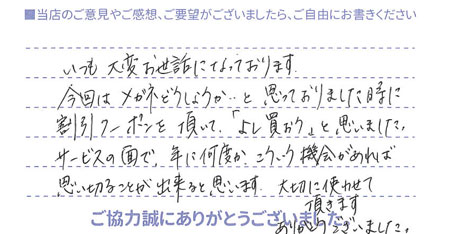 ■当店のご意見やご感想、ご要望がございましたら、ご自由にお書きください
いつも大変お世話になっております.
今回はメガネどうしようか‥と思っておりました時に
割引クーポンを頂いて、「よし買おう」と思いました。
サービスの面で、年に何度かこういう機会があれば
思い切ることが出来ると思います. 大切に使わせて
頂きます
ご協力誠にありがとうございました。
ありがとうございました。